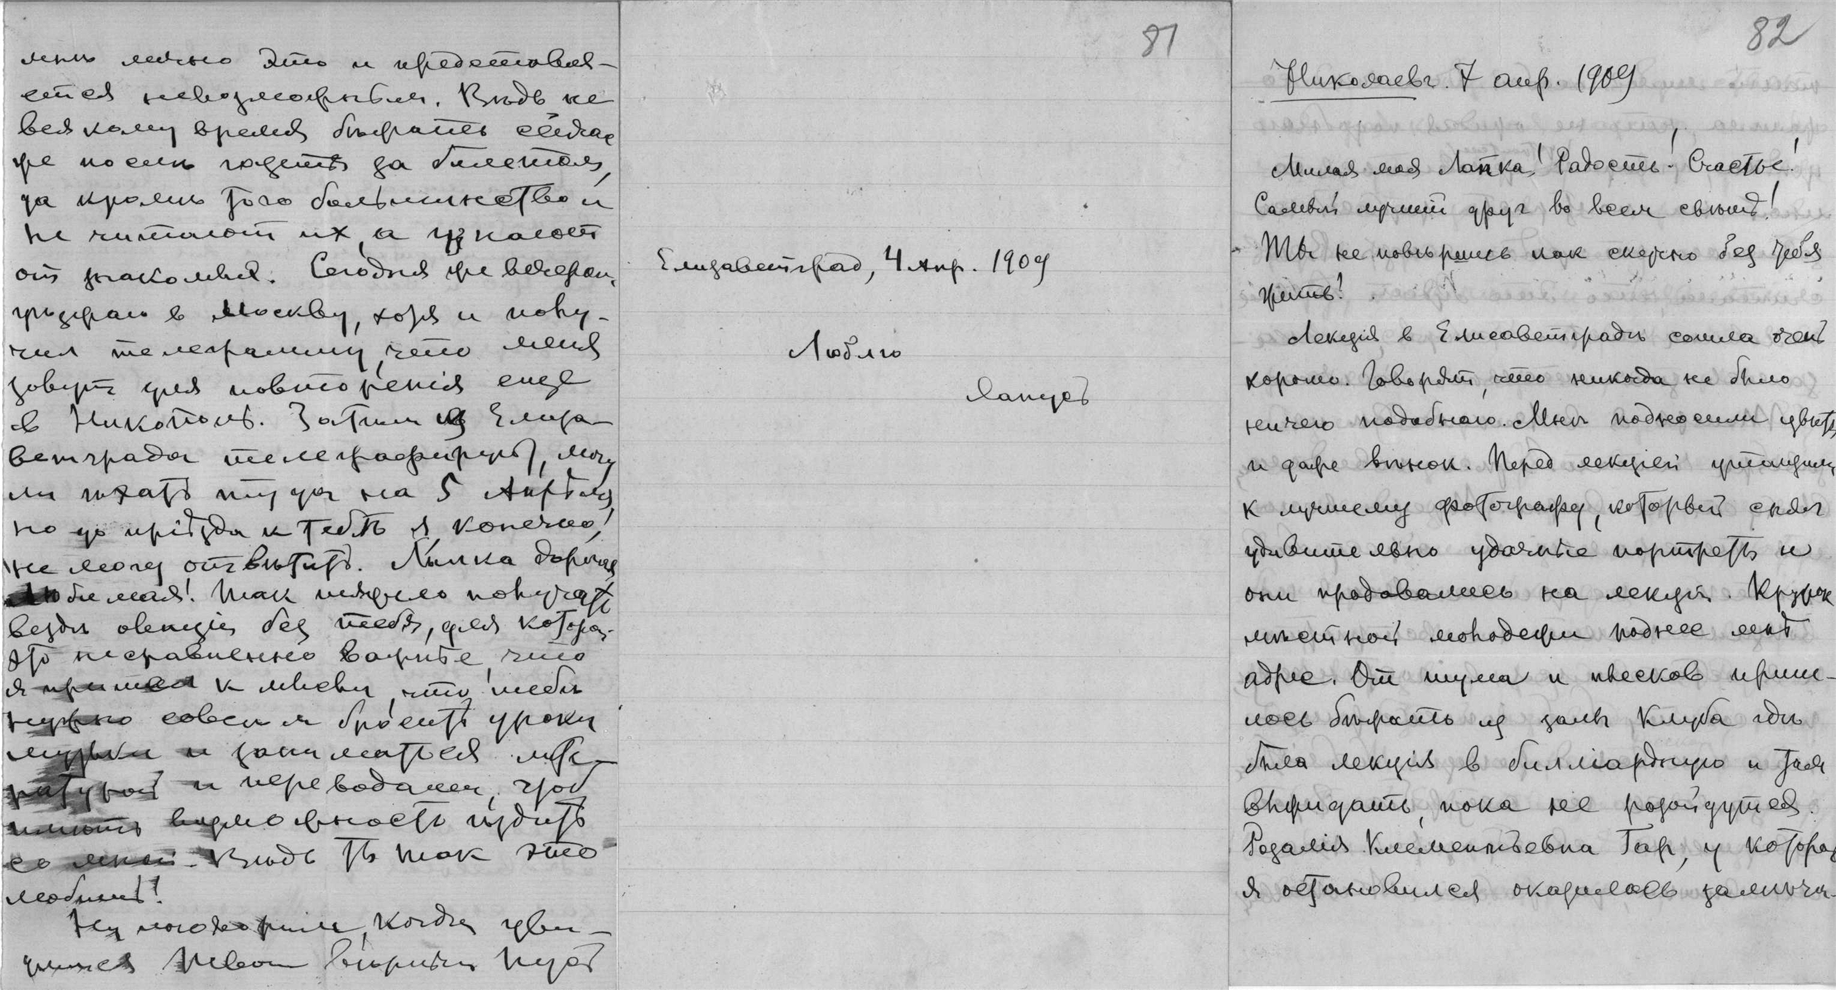 мнѣ лично это и представля-
ется невозможным. Вѣдь не
всякому время бѣжать сейчас
же послѣ газеты за билетом,
да кромѣ того большинство и
не читают их, а узнают
от знакомых. Сегодня же вечером,
уѣзжаю в Москву, хотя и полу-
чил телеграмму, что меня
зовут для повторенія еще
в Никополь. Затѣм из Елиза-
ветграда телеграфируют, могу
ли ѣхать туда на 5 Апрѣля,
но до пріѣзда к тебѣ я, конечно,
не могу отвѣтить. Лялка дорогая,
любимая! Так тяжело получать
вездѣ оваціи без тебя, для которой
это несравненно важнѣе, что
я пришел к мысли, что тебѣ
нужно совсѣм бросить уроки
музыки и заниматься лите-
ратурой и переводами, чтоб
имѣть возможность ѣздить
со мной. Вѣдь ты так это
любишь!
Ну поговорим, когда уви-
димся. Твой вѣрный Пусь
81
Елизаветград, 4 Апр. 1909
Люблю
Лапусь
82
Николаевъ. 7 апр. 1909
Милая моя Лапка! Радость! Счастье!
Самый лучшій друг во всем свѣтѣ!
Ты не повѣришь как скучно без тебя
жить!
Лекція в Елисаветградѣ сошла очень
хорошо. Говорят, что никогда не было
ничего подобнаго. Мнѣ подносили цвѣты
и даже вѣнок. Перед лекціей утащили
к лучшему фотографу, который снял
удивительно удачные портреты и
они продавались на лекціи. Кружок
мѣстной молодежи поднес мнѣ
адрес. От шума и плесков приш-
лось бѣжать из залы Клуба гдѣ
была лекція в билліардную и там
выжидать, пока не разойдутся.
Розалія Клементьевна Гар, у которой
я остановился оказалась замѣча-